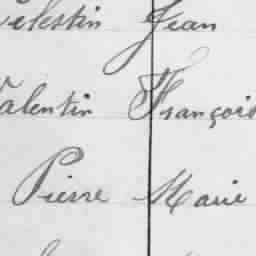 Célestin Jean
Valentin François
Pierre Marie